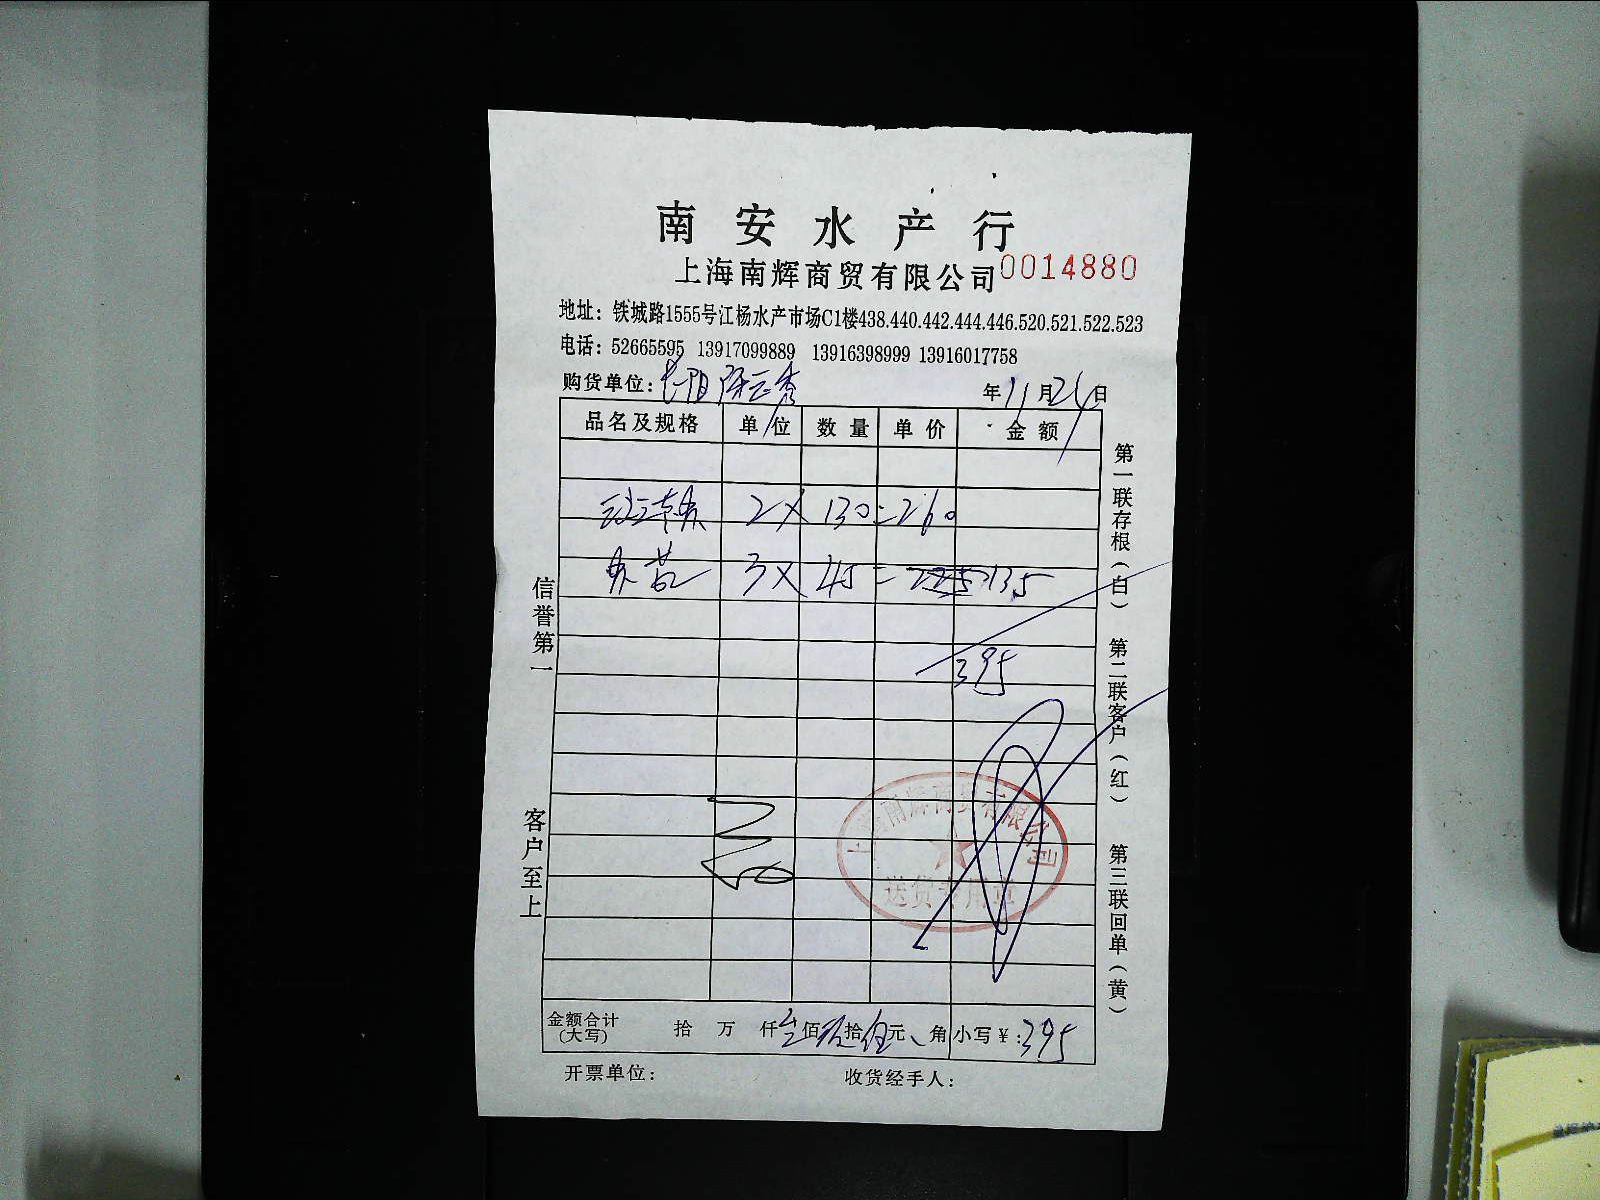 南安水产行
上海南辉商贸有限公司 0014880
地址：铁城路1555号江杨水产市场C1楼438.440.442.444.446.520.521.522.523
电话：52665595 13917099889 13916398999 13916017758
购货单位： 年11月24日
品名及规格 单位 数量 单价 金额
2×130=260
3×45=135
395
上海南辉商贸有限公司
送货专用章
金额合计(大写) 拾 万 仟叁佰玖拾伍元 角 小写￥:395
开票单位： 收货经手人：
信誉第一 客户至上
第一联存根(白) 第二联客户(红) 第三联回单(黄)